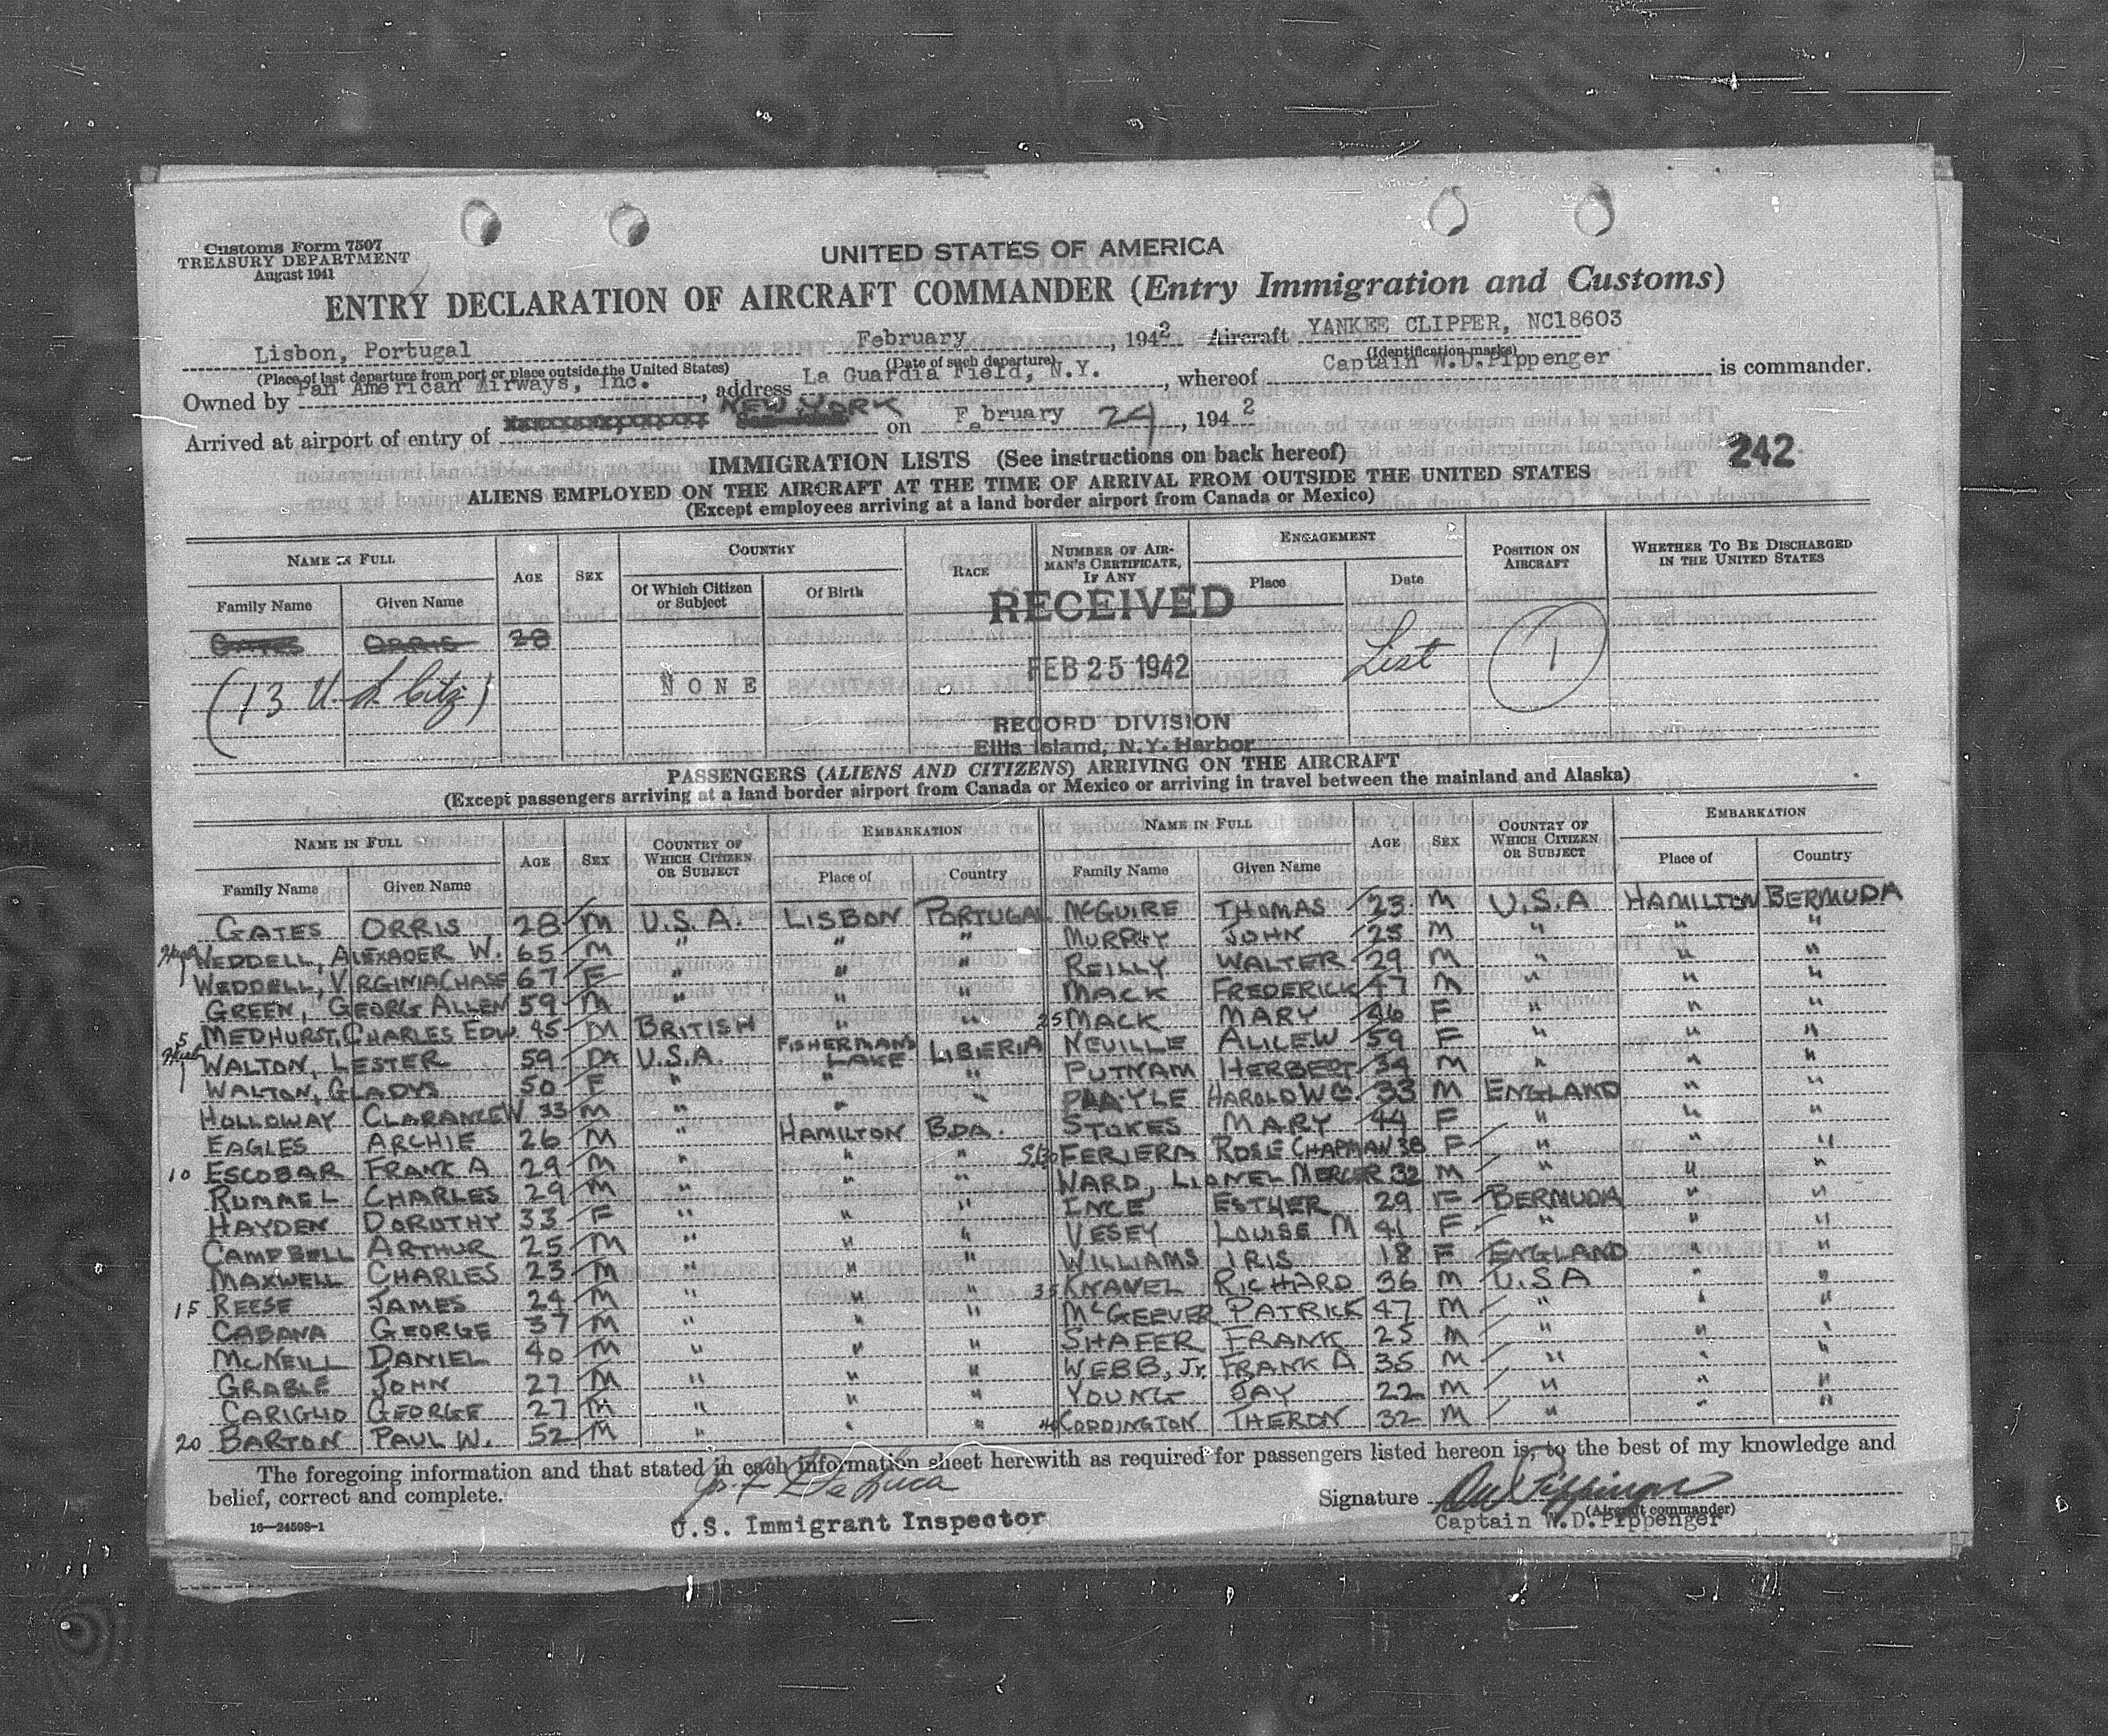 Customs Form 7507
TREASURY DEPARTMENT
August 1941
UNITED STATES OF AMERICA
ENTRY DECLARATION OF AIRCRAFT COMMANDER (Entry Immigration and Customs)
Lisbon, Portugal February , 1942 Aircraft YANKEE CLIPPER, NC18603
(Place of last departure from port or place outside the United States) (Date of such departure) (Identification marks)
Owned by Pan American Airways, Inc. , address La Guardia Field, N.Y. , whereof Captain W.D.Pippenger is commander.
Arrived at airport of entry of NEW YORK on February 24, 1942
242
IMMIGRATION LISTS (See instructions on back hereof)
ALIENS EMPLOYED ON THE AIRCRAFT AT THE TIME OF ARRIVAL FROM OUTSIDE THE UNITED STATES
(Except employees arriving at a land border airport from Canada or Mexico)
NAME IN FULL AGE SEX COUNTRY RACE NUMBER OF AIRMAN'S CERTIFICATE, IF ANY ENGAGEMENT POSITION ON AIRCRAFT WHETHER TO BE DISCHARGED IN THE UNITED STATES
Family Name Given Name Of Which Citizen or Subject Of Birth Place Date
GATES ORRIS 28
RECEIVED
(13 U.S. Citz) NONE FEB 25 1942 List 1
RECORD DIVISION
Ellis Island, N.Y. Harbor
PASSENGERS (ALIENS AND CITIZENS) ARRIVING ON THE AIRCRAFT
(Except passengers arriving at a land border airport from Canada or Mexico or arriving in travel between the mainland and Alaska)
NAME IN FULL AGE SEX COUNTRY OF WHICH CITIZEN OR SUBJECT EMBARKATION NAME IN FULL AGE SEX COUNTRY OF WHICH CITIZEN OR SUBJECT EMBARKATION
Family Name Given Name Place of Country Family Name Given Name Place of Country
GATES ORRIS 28 M U.S.A. LISBON PORTUGAL McGUIRE THOMAS 23 M U.S.A HAMILTON BERMUDA
WEDDELL, ALEXADER W. 65 M " " " MURPHY JOHN 25 M " " "
WEDDELL, VIRGINIA CHASE 67 F " " " REILLY WALTER 29 M " " "
GREEN, GEORGE ALLEN 59 M " " " MACK FREDERICK 47 M " " "
5 MEDHURST, CHARLES EDW. 45 M BRITISH " " 25 MACK MARY 46 F " " "
WALTON, LESTER 59 M U.S.A. FISHERMANS LAKE LIBERIA NEVILLE ALICE W 59 F " " "
WALTON, GLADYS 50 F " " " PUTNAM HERBERT 34 M " " "
HOLLOWAY CLARANCE W 33 M " " " PLAYLE HAROLD WM. 33 M ENGLAND " "
EAGLES ARCHIE 26 M " HAMILTON BDA. STOKES MARY 44 F " " "
10 ESCOBAR FRANK A 29 M " " " 30 FERIERA ROSE CHAPMAN 38 F " " "
RUMMEL CHARLES 29 M " " " WARD, LIONEL MERCER 32 M " " "
HAYDEN DOROTHY 33 F " " " INCE ESTHER 29 F BERMUDA " "
CAMPBELL ARTHUR 25 M " " " VESEY LOUISE M 41 F " " "
MAXWELL CHARLES 23 M " " " WILLIAMS IRIS 18 F ENGLAND " "
15 REESE JAMES 24 M " " " 35 KNAVEL RICHARD 36 M U.S.A " "
CABANA GEORGE 37 M " " " McGEEVER PATRICK 47 M " " "
McNEILL DANIEL 40 M " " " SHAFER FRANK 25 M " " "
GRABLE JOHN 27 M " " " WEBB, Jr. FRANK A 35 M " " "
CARIGLIO GEORGE 27 M " " " YOUNG JAY 22 M " " "
20 BARTON PAUL W. 52 M " " " 40 CODDINGTON THERON 32 M " " "
The foregoing information and that stated in each information sheet herewith as required for passengers listed hereon is, to the best of my knowledge and
belief, correct and complete.
Signature
(Aircraft commander)
16—24598-1
U.S. Immigrant Inspector
Captain W.D.Pippenger